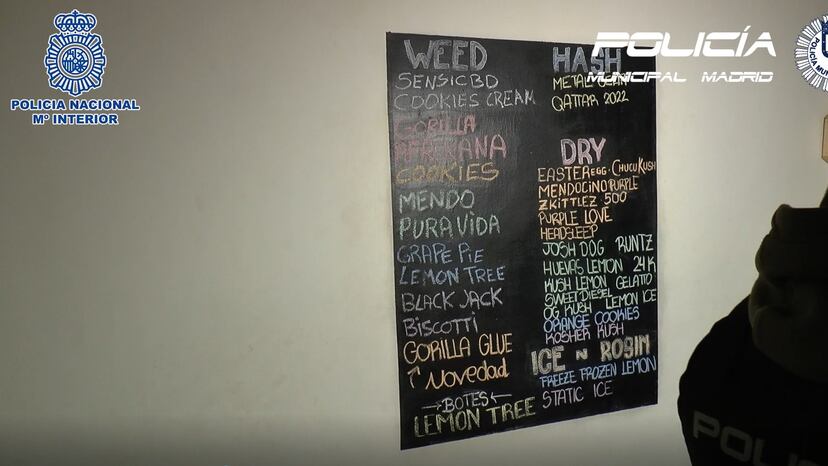 POLICIA NACIONAL
Mº INTERIOR
POLICÍA
MUNICIPAL MADRID
WEED
SENSICBD
COOKIES CREAM
GORILLA
AFRIKANA
COOKIES
MENDO
PURA VIDA
GRAPE PIE
LEMON TREE
BLACK JACK
BISCOTTI
GORILLA GLUE
↑ Novedad
→BOTES←
LEMON TREE
HASH
METAL
QATTAR 2022
DRY
EASTER EGG · CHUCU KUSH
MENDOCINO PURPLE
ZKITTLEZ 500
PURPLE LOVE
HEADSLEEP
JOSH DOG RUNTZ
HUEVAS LEMON 24K
KUSH LEMON GELATTO
SWEET DIESEL
OG KUSH LEMON ICE
ORANGE COOKIES
KOSHER KUSH
ICE N ROSIN
FREEZE FROZEN LEMON
STATIC ICE
POLICI